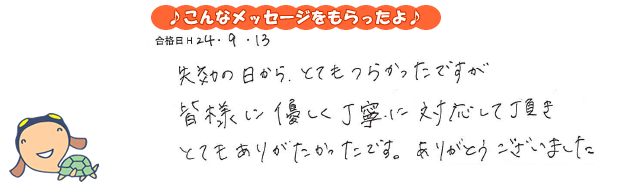 ♪こんなメッセージをもらったよ♪
合格日H24・9・13
失効の日から、とてもつらかったですが
皆様に優しく丁寧に対応して頂き
とてもありがたかったです。ありがとうございました